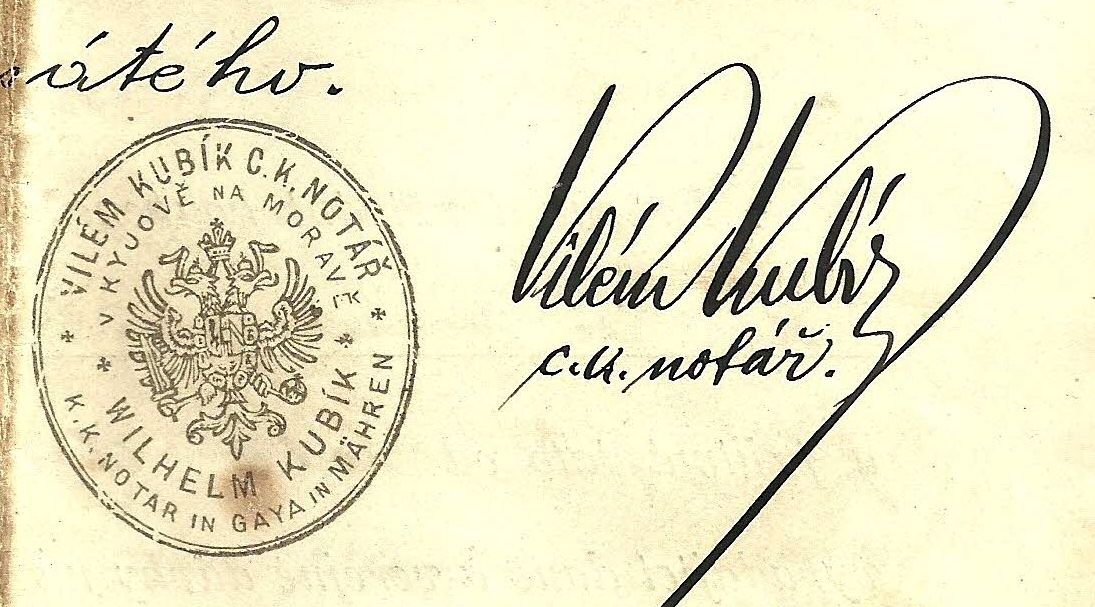 átého.
VILÉM KUBÍK C.K. NOTÁŘ
V KYJOVĚ NA MORAVĚ
WILHELM KUBÍK
K.K. NOTAR IN GAYA IN MÄHREN
Vilém Kubík
c.k. notář.